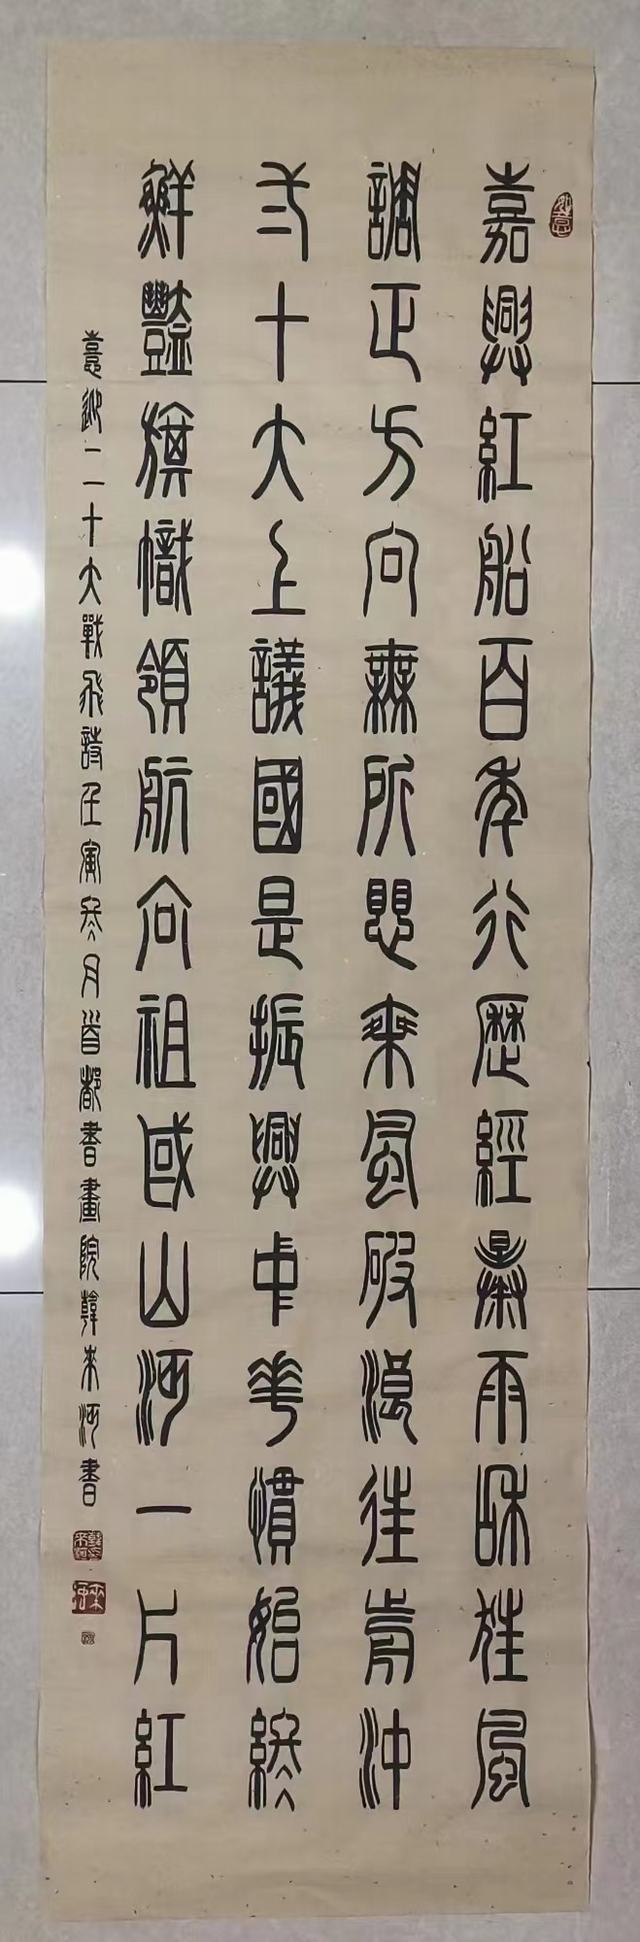 嘉興紅船百年行歷經暴雨和狂風
調正方向無所思乘風破浪往前沖
二十大上議國是振興中華慣始終
鮮豔旗幟領航向祖國山河一片紅
喜迎二十大戰飛詩壬寅冬月首都書畫院韓來河書